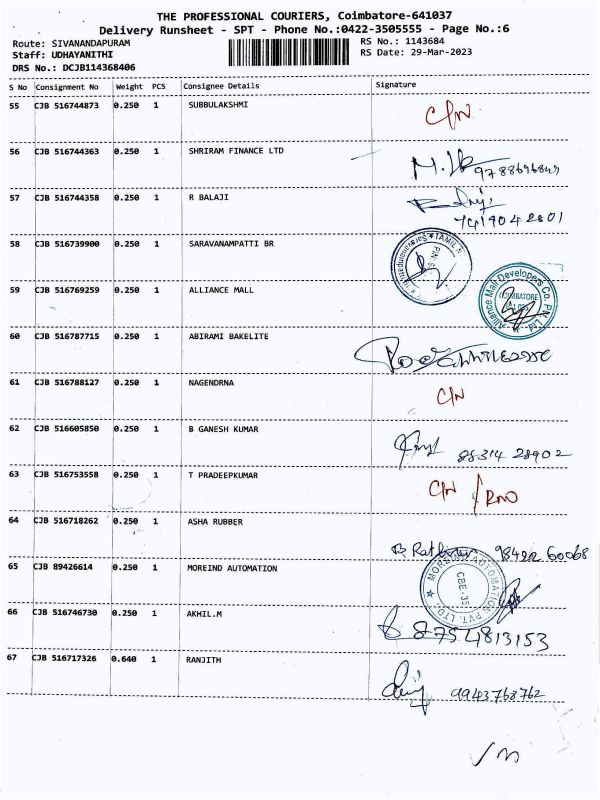 THE PROFESSIONAL COURIERS, Coimbatore-641037
Delivery Runsheet - SPT - Phone No.:0422-3505555 - Page No.:6
Route: SIVANANDAPURAM
RS No.: 1143684
Staff: UDHAYANITHI
RS Date: 29-Mar-2023
DRS No.: DCJB114368406
S No Consignment No Weight PCS Consignee Details Signature
55 CJB 516744873 0.250 1 SUBBULAKSHMI C/N
56 CJB 516744363 0.250 1 SHRIRAM FINANCE LTD
57 CJB 516744358 0.250 1 R BALAJI
7419042801
58 CJB 516739900 0.250 1 SARAVANAMPATTI BR
59 CJB 516769259 0.250 1 ALLIANCE MALL
Alliance Mall Developers Co. Pvt. Ltd
COIMBATORE
60 CJB 516787715 0.250 1 ABIRAMI BAKELITE
61 CJB 516788127 0.250 1 NAGENDRNA C/N
62 CJB 516605850 0.250 1 B GANESH KUMAR 88314 28902
63 CJB 516753558 0.250 1 T PRADEEPKUMAR C/N / RNO
64 CJB 516718262 0.250 1 ASHA RUBBER
65 CJB 89426614 0.250 1 MOREIND AUTOMATION
MOREIND AUTOMATION PVT. LTD.
CBE-35
66 CJB 516746730 0.250 1 AKHIL.M 8754813153
67 CJB 516717326 0.640 1 RANJITH 9943768762